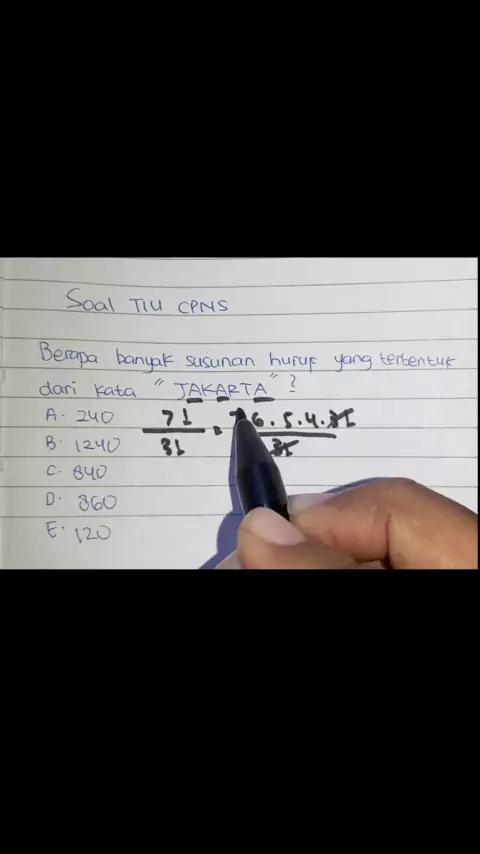 Soal TIU CPNS
Berapa banyak susunan huruf yang terbentuk
dari kata "JAKARTA" ?
A. 240
B. 1240
C. 840
D. 860
E. 120
7! / 3! = 7.6.5.4.3! / 3!